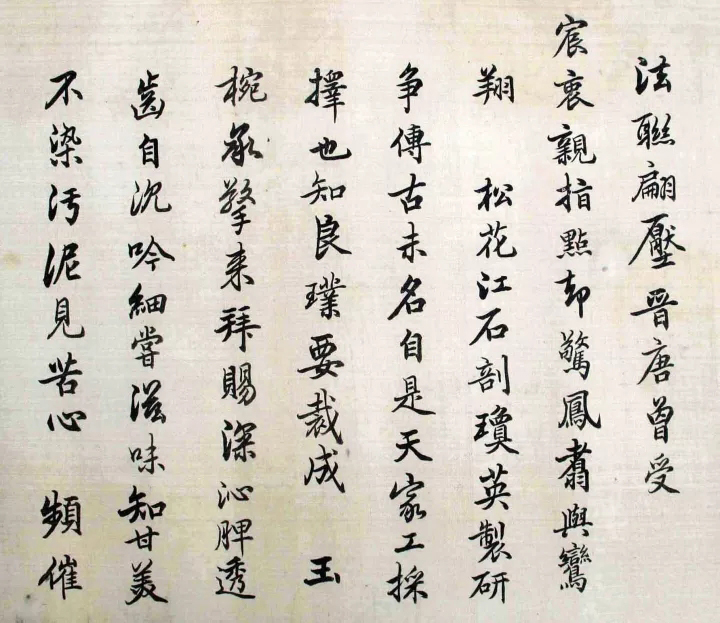 法聯翩壓晉唐曾受
宸衷親指點却驚鳳翥與鸞
翔　松花江石剖瓊英製研
争傳古未名自是天家工採
擇也知良璞要裁成　玉
椀承擎来拜賜深沁脾透
齒自沉吟細嘗滋味知甘美
不染污泥見苦心　頻催